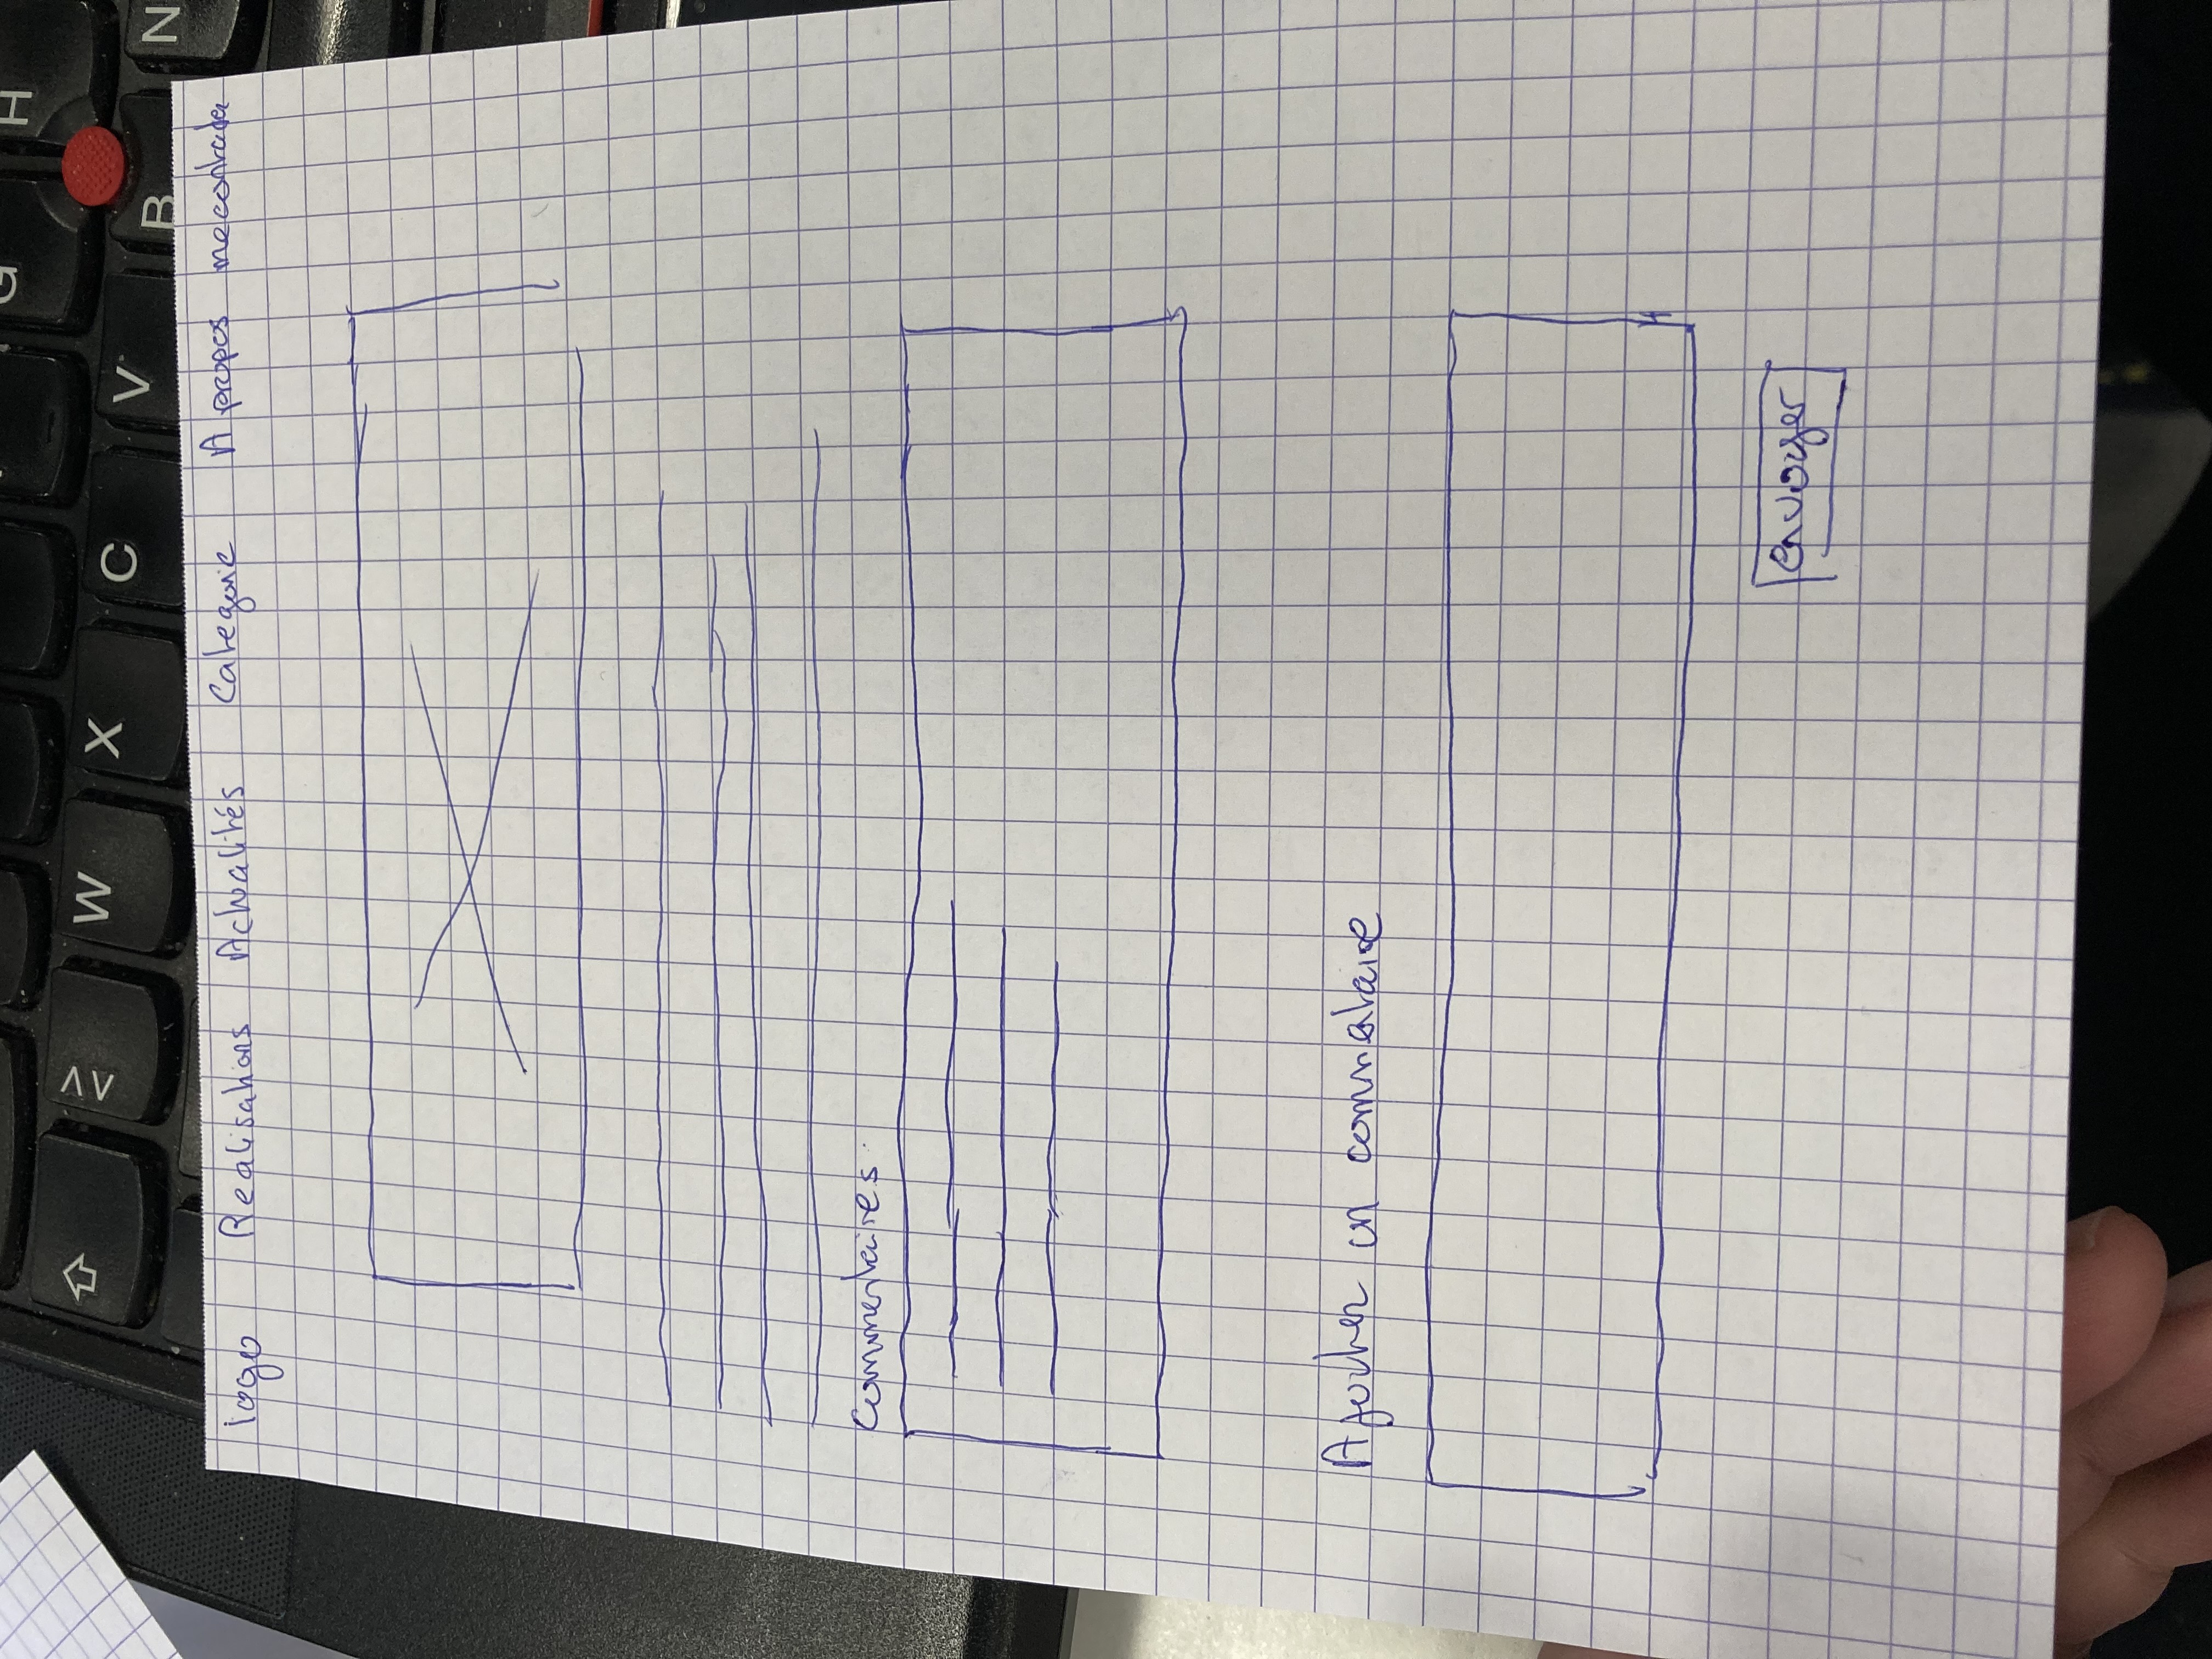 G H
> <
W X C V B N
logo Realisations Actualités Categorie A propos me contacter
Commentaires
Ajouter un commentaire
envoyer